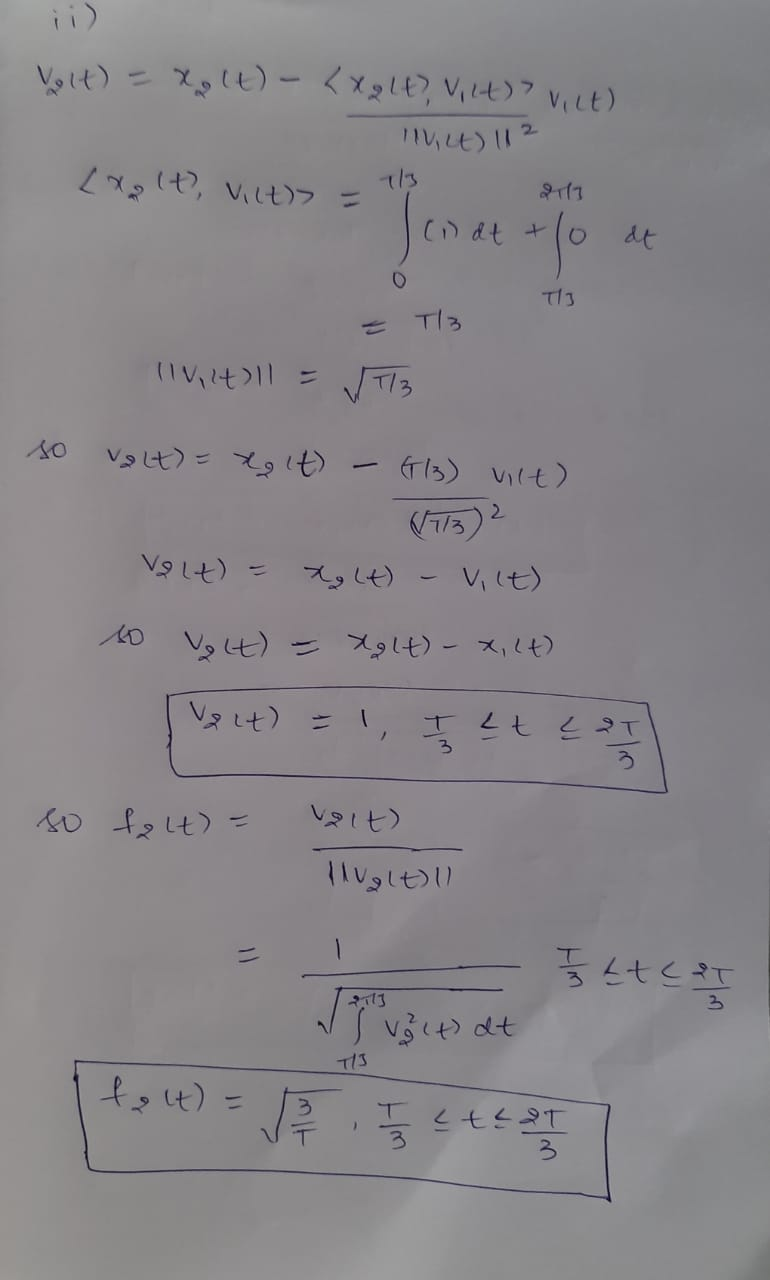 ii)
V₂(t) = x₂(t) - <x₂(t), V₁(t)> / ||V₁(t)||² V₁(t)
<x₂(t), V₁(t)> = ∫₀^{T/3} (1) dt + ∫_{T/3}^{2T/3} 0 dt
= T/3
||V₁(t)|| = √(T/3)
so V₂(t) = x₂(t) - (T/3) / (√(T/3))² V₁(t)
V₂(t) = x₂(t) - V₁(t)
so V₂(t) = x₂(t) - x₁(t)
V₂(t) = 1, T/3 ≤ t ≤ 2T/3
so f₂(t) = V₂(t) / ||V₂(t)||
= 1 / √(∫_{T/3}^{2T/3} V₂²(t) dt) T/3 ≤ t ≤ 2T/3
f₂(t) = √(3/T), T/3 ≤ t ≤ 2T/3